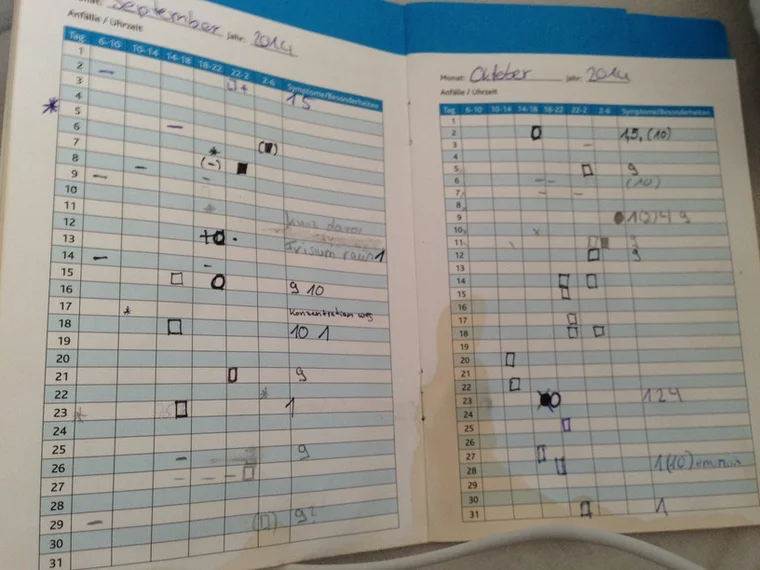 September Jahr: 2014
Anfälle / Uhrzeit
Tag 6-10 10-14 14-18 18-22 22-2 2-6 Symptome/Besonderheiten
1
2
3 15
4
5
6
7
8
9
10
11
12 kurz davor
13
14 1
15
16 9 10
17 Konzentration weg
18 10 1
19
20
21 9
22
23 1
24
25 9
26
27
28
29 9?
30
31
Monat: Oktober Jahr: 2014
Anfälle / Uhrzeit
Tag 6-10 10-14 14-18 18-22 22-2 2-6 Symptome/Besonderheiten
1
2 1,5, (10)
3
4
5 9
6 (10)
7
8
9
10
11 9
12 9
13
14
15
16
17
18
19
20
21
22
23 124
24
25
26
27
28 1(10)
29
30
31 1